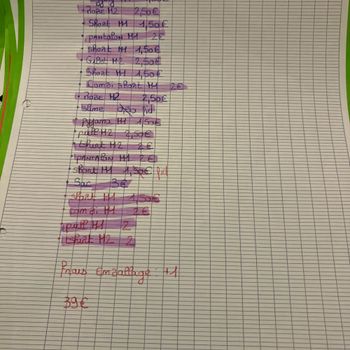 Robe M2 2,50€
Short M1 1,50€
pantalon M1 2€
short M1 1,50€
Gilet M2 2,50€
Short M1 1,50€
Combi short M1 2€
Robe M2 2,50€
Pyjama M1 1,50€
pull M2 2,50€
tshirt M2 2€
pantalon M1 2€
Short M1 1,50€
Sac 3€
Short M1 1,50€
combi M1 2€
pull M1 2
tshirt M2 2
Frais Emballage : +1
39€